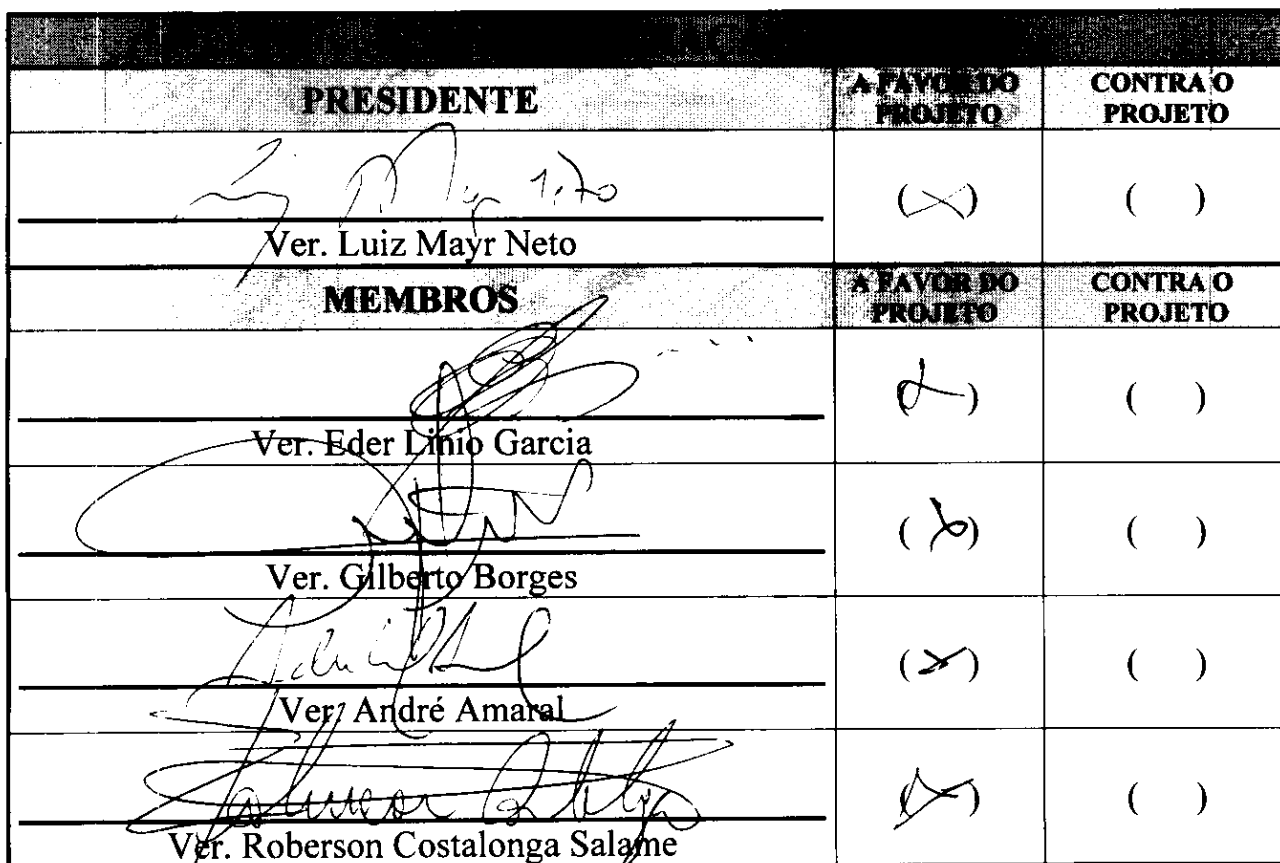 PRESIDENTE
A FAVOR DO PROJETO
CONTRA O PROJETO
( X )
( )
Ver. Luiz Mayr Neto
MEMBROS
A FAVOR DO PROJETO
CONTRA O PROJETO
( X )
( )
Ver. Eder Linio Garcia
( X )
( )
Ver. Gilberto Borges
( X )
( )
Ver. André Amaral
( X )
( )
Ver. Roberson Costalonga Salame